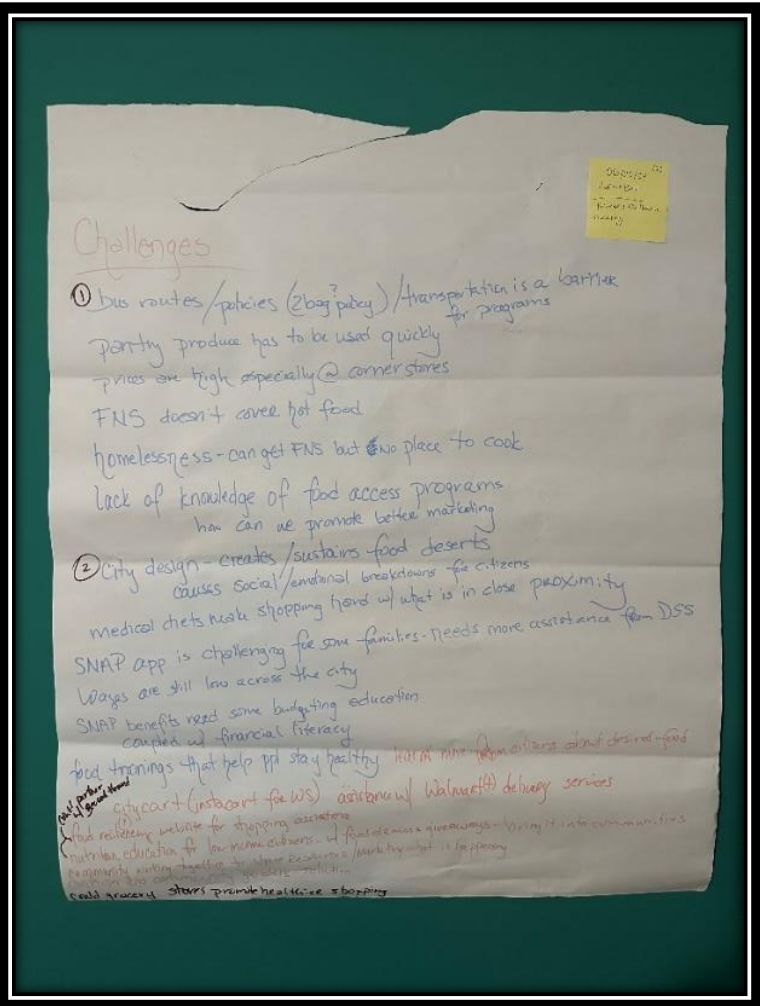 Challenges
① bus routes/policies (2bag? policy)/transportation is a barrier
for programs
pantry produce has to be used quickly
prices are high especially @ corner stores
FNS doesn't cover hot food
homelessness - can get FNS but no place to cook
lack of knowledge of food access programs
how can we promote better marketing
② City design - creates/sustains food deserts
causes social/emotional breakdowns for citizens
medical diets make shopping hard w/ what is in close proximity
SNAP app is challenging for some families - needs more assistance from DSS
Wages are still low across the city
SNAP benefits need some budgeting education
coupled w/ financial literacy
food trainings that help ppl stay healthy learn more from citizens about desired food
citycart (instacart for WS) assistance w/ Walmart(+) delivery services
partner
food resiliency website for shopping assistance
nutrition education for low income citizens - w/ food demos giveaways - bring it into communities
community working together to share resources/marketing what is happening
could grocery stores promote healthier shopping